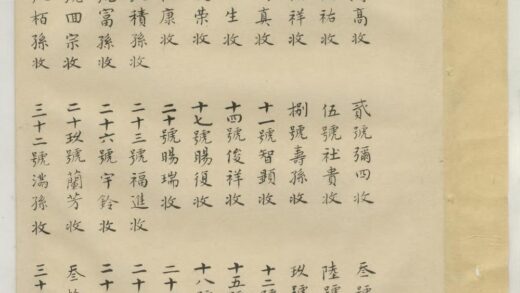 高收 貳號彌四收 叁號
祐收 伍號社貴收 陸號
祥收 捌號壽孫收 玖號
真收 十一號智顯收 十二號
生收 十四號俊祥收 十五號
榮收 十七號賜復收 十八號
康收 二十號賜瑞收 二十
積孫收 二十三號福進收 二十
富孫收 二十六號宇鈴收 二十
號四宗收 二十玖號蘭芳收 叁
栢孫收 三十二號滿孫收 三十